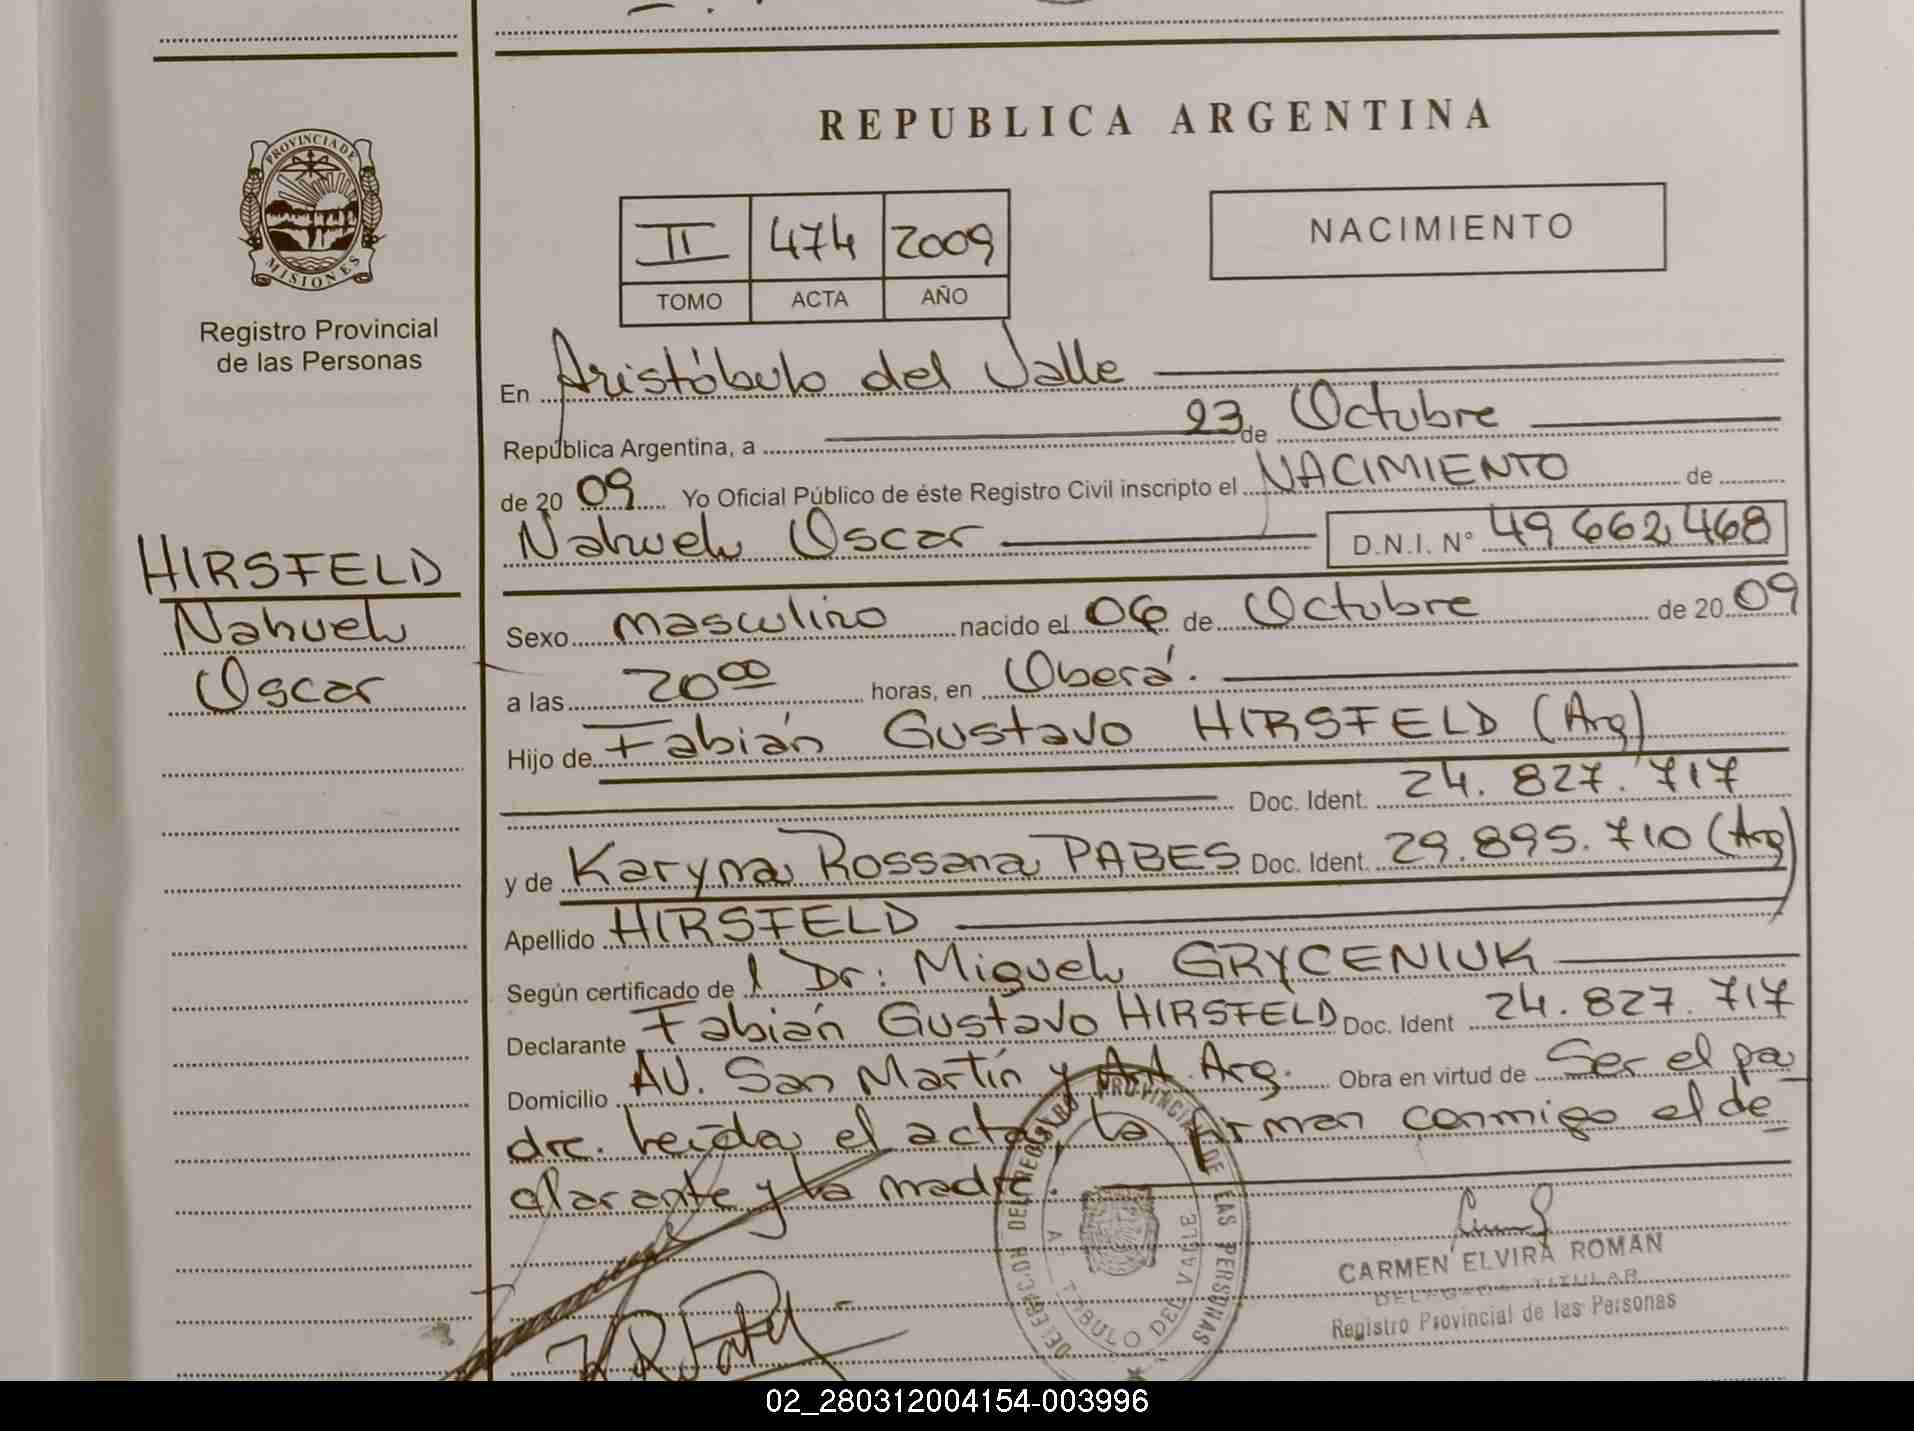 REPUBLICA ARGENTINA
PROVINCIA DE
MISIONES
Registro Provincial
de las Personas
II 474 2009
TOMO ACTA AÑO
NACIMIENTO
HIRSFELD
Nahuel
Oscar
En Aristóbulo del Valle
República Argentina, a 23 de Octubre
de 20 09 Yo Oficial Público de éste Registro Civil inscripto el NACIMIENTO de
Nahuel Oscar D.N.I. N° 49 662 468
Sexo masculino nacido el 06 de Octubre de 20 09
a las 20 00 horas, en Oberá.
Hijo de Fabián Gustavo HIRSFELD (Arg)
Doc. Ident. 24.827.717
y de Karyna Rossana PABES Doc. Ident. 29.895.710 (Arg)
Apellido HIRSFELD
Según certificado de l Dr: Miguel GRYCENIUK
Declarante Fabián Gustavo HIRSFELD Doc. Ident 24.827.717
Domicilio AV. San Martín y Ant. Arg. Obra en virtud de Ser el pa
dre. Leída el acta, la firman conmigo el de
clarante y la madre.
DELEGACION DEL REGISTRO PROVINCIAL DE LAS PERSONAS
A TOBULO DEL VALLE
CARMEN ELVIRA ROMAN
DELEGADA TITULAR
Registro Provincial de las Personas
02_280312004154-003996